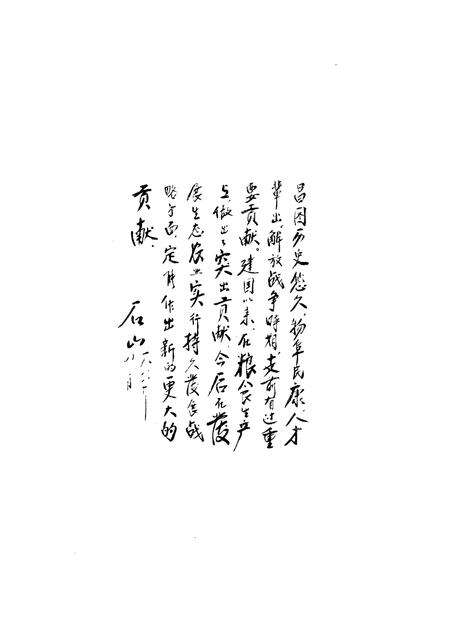 昌图历史悠久，物阜民康，人才
辈出，解放战争时期，支前有过重
要贡献。建国以来，在粮食生产
上，做出了突出贡献，今后在发
展生态农业实行持久发展战
略方面，定能作出新的更大的
贡献。
石山